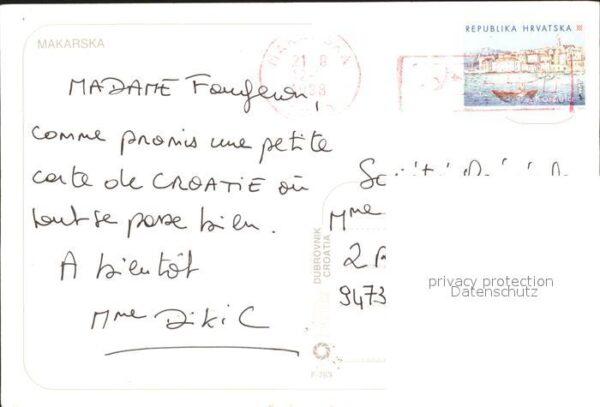 MAKARSKA
REPUBLIKA HRVATSKA
21 8
MADAME Fougeron,
comme promis une petite
carte de CROATIE où
tout se passe bien.
A bientôt
Mme DIKIC
Mme
2
9473
DUBROVNIK
CROATIA
privacy protection
Datenschutz